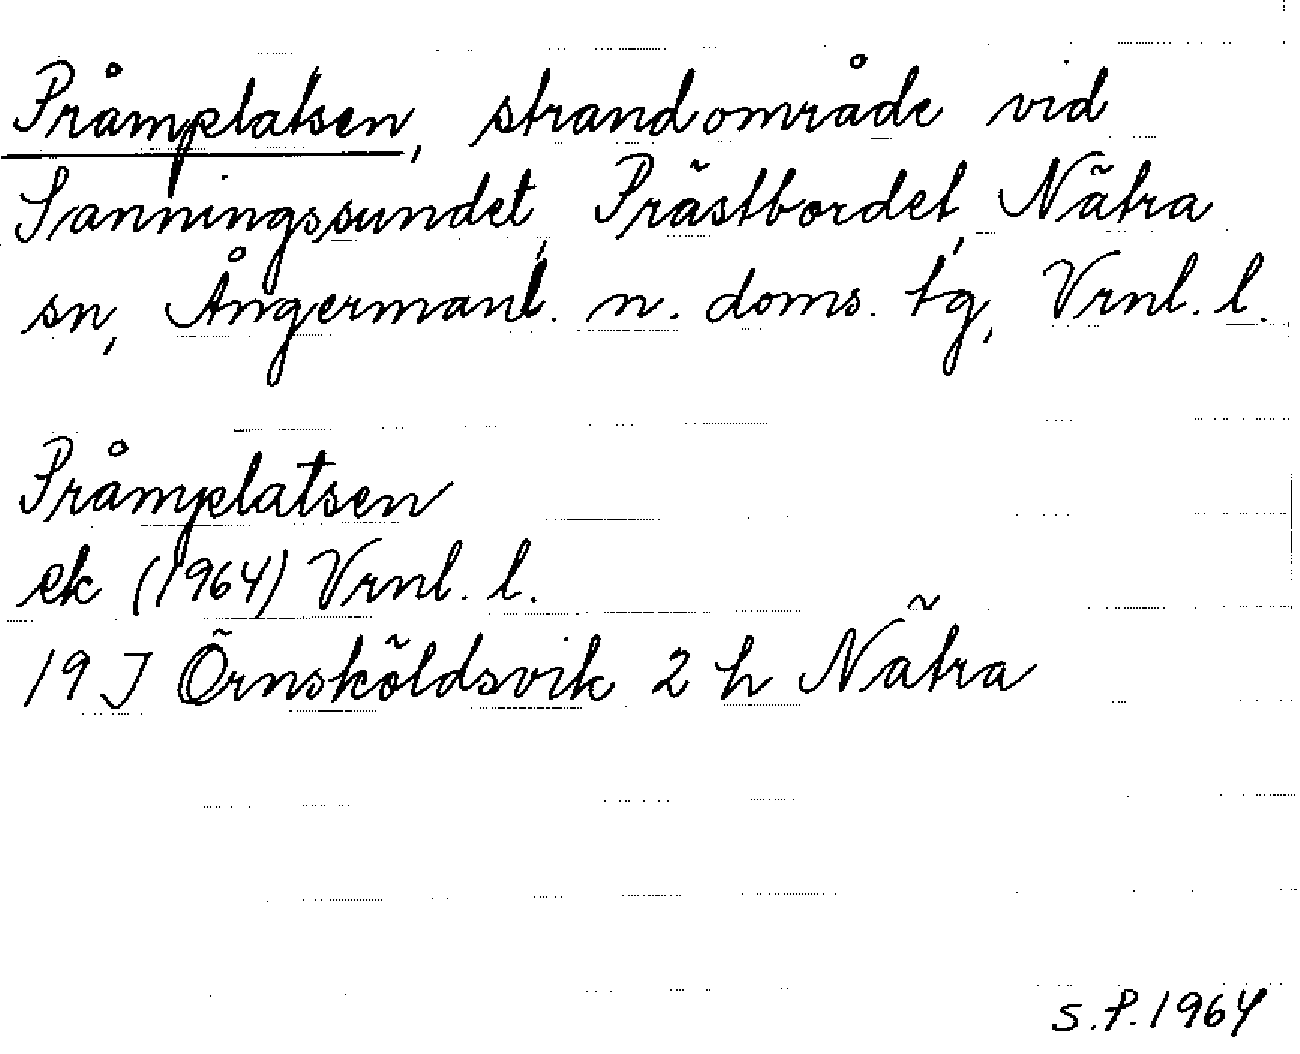 Pråmplatsen, strandområde vid
Sanningssundet, Prästbordet, Nätra
sn, Ångermanl. n. doms. tg, Vrnl. l.
Pråmplatsen
ek (1964) Vrnl. l.
19 J Örnsköldsvik 2 h Nätra
S.P.1964